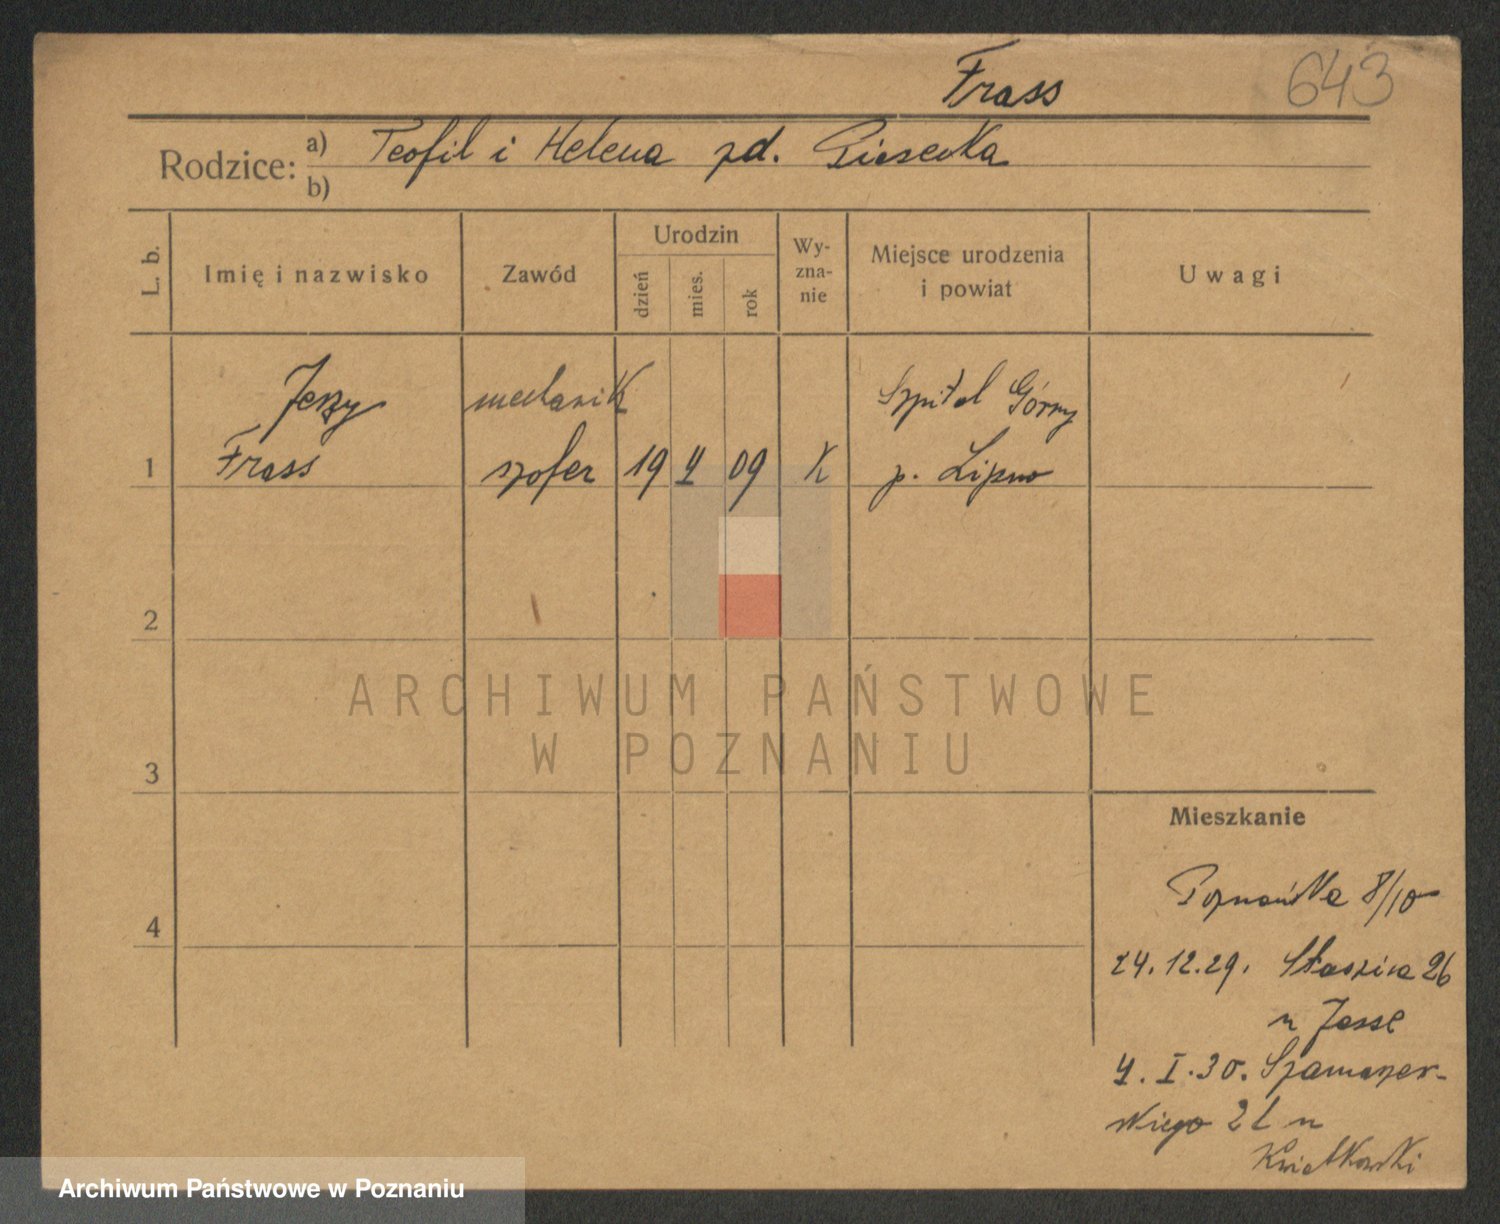 Frass
643
Rodzice: a) Teofil i Helena zd. Piasecka
b)
L. b.
Imię i nazwisko
Zawód
Urodzin
dzień
mies.
rok
Wy-
zna-
nie
Miejsce urodzenia
i powiat
Uwagi
Jerzy
mechanik
Szpital Górny
1 Frass szofer 19 09 K p. Lipno
2
ARCHIWUM PAŃSTWOWE
W POZNANIU
3
Mieszkanie
Poznańska 8/10
4
24.12.29. Staszica 26
u Jesse
4.I.30. Szamarzew-
skiego 21 u
Kwiatkowski
Archiwum Państwowe w Poznaniu